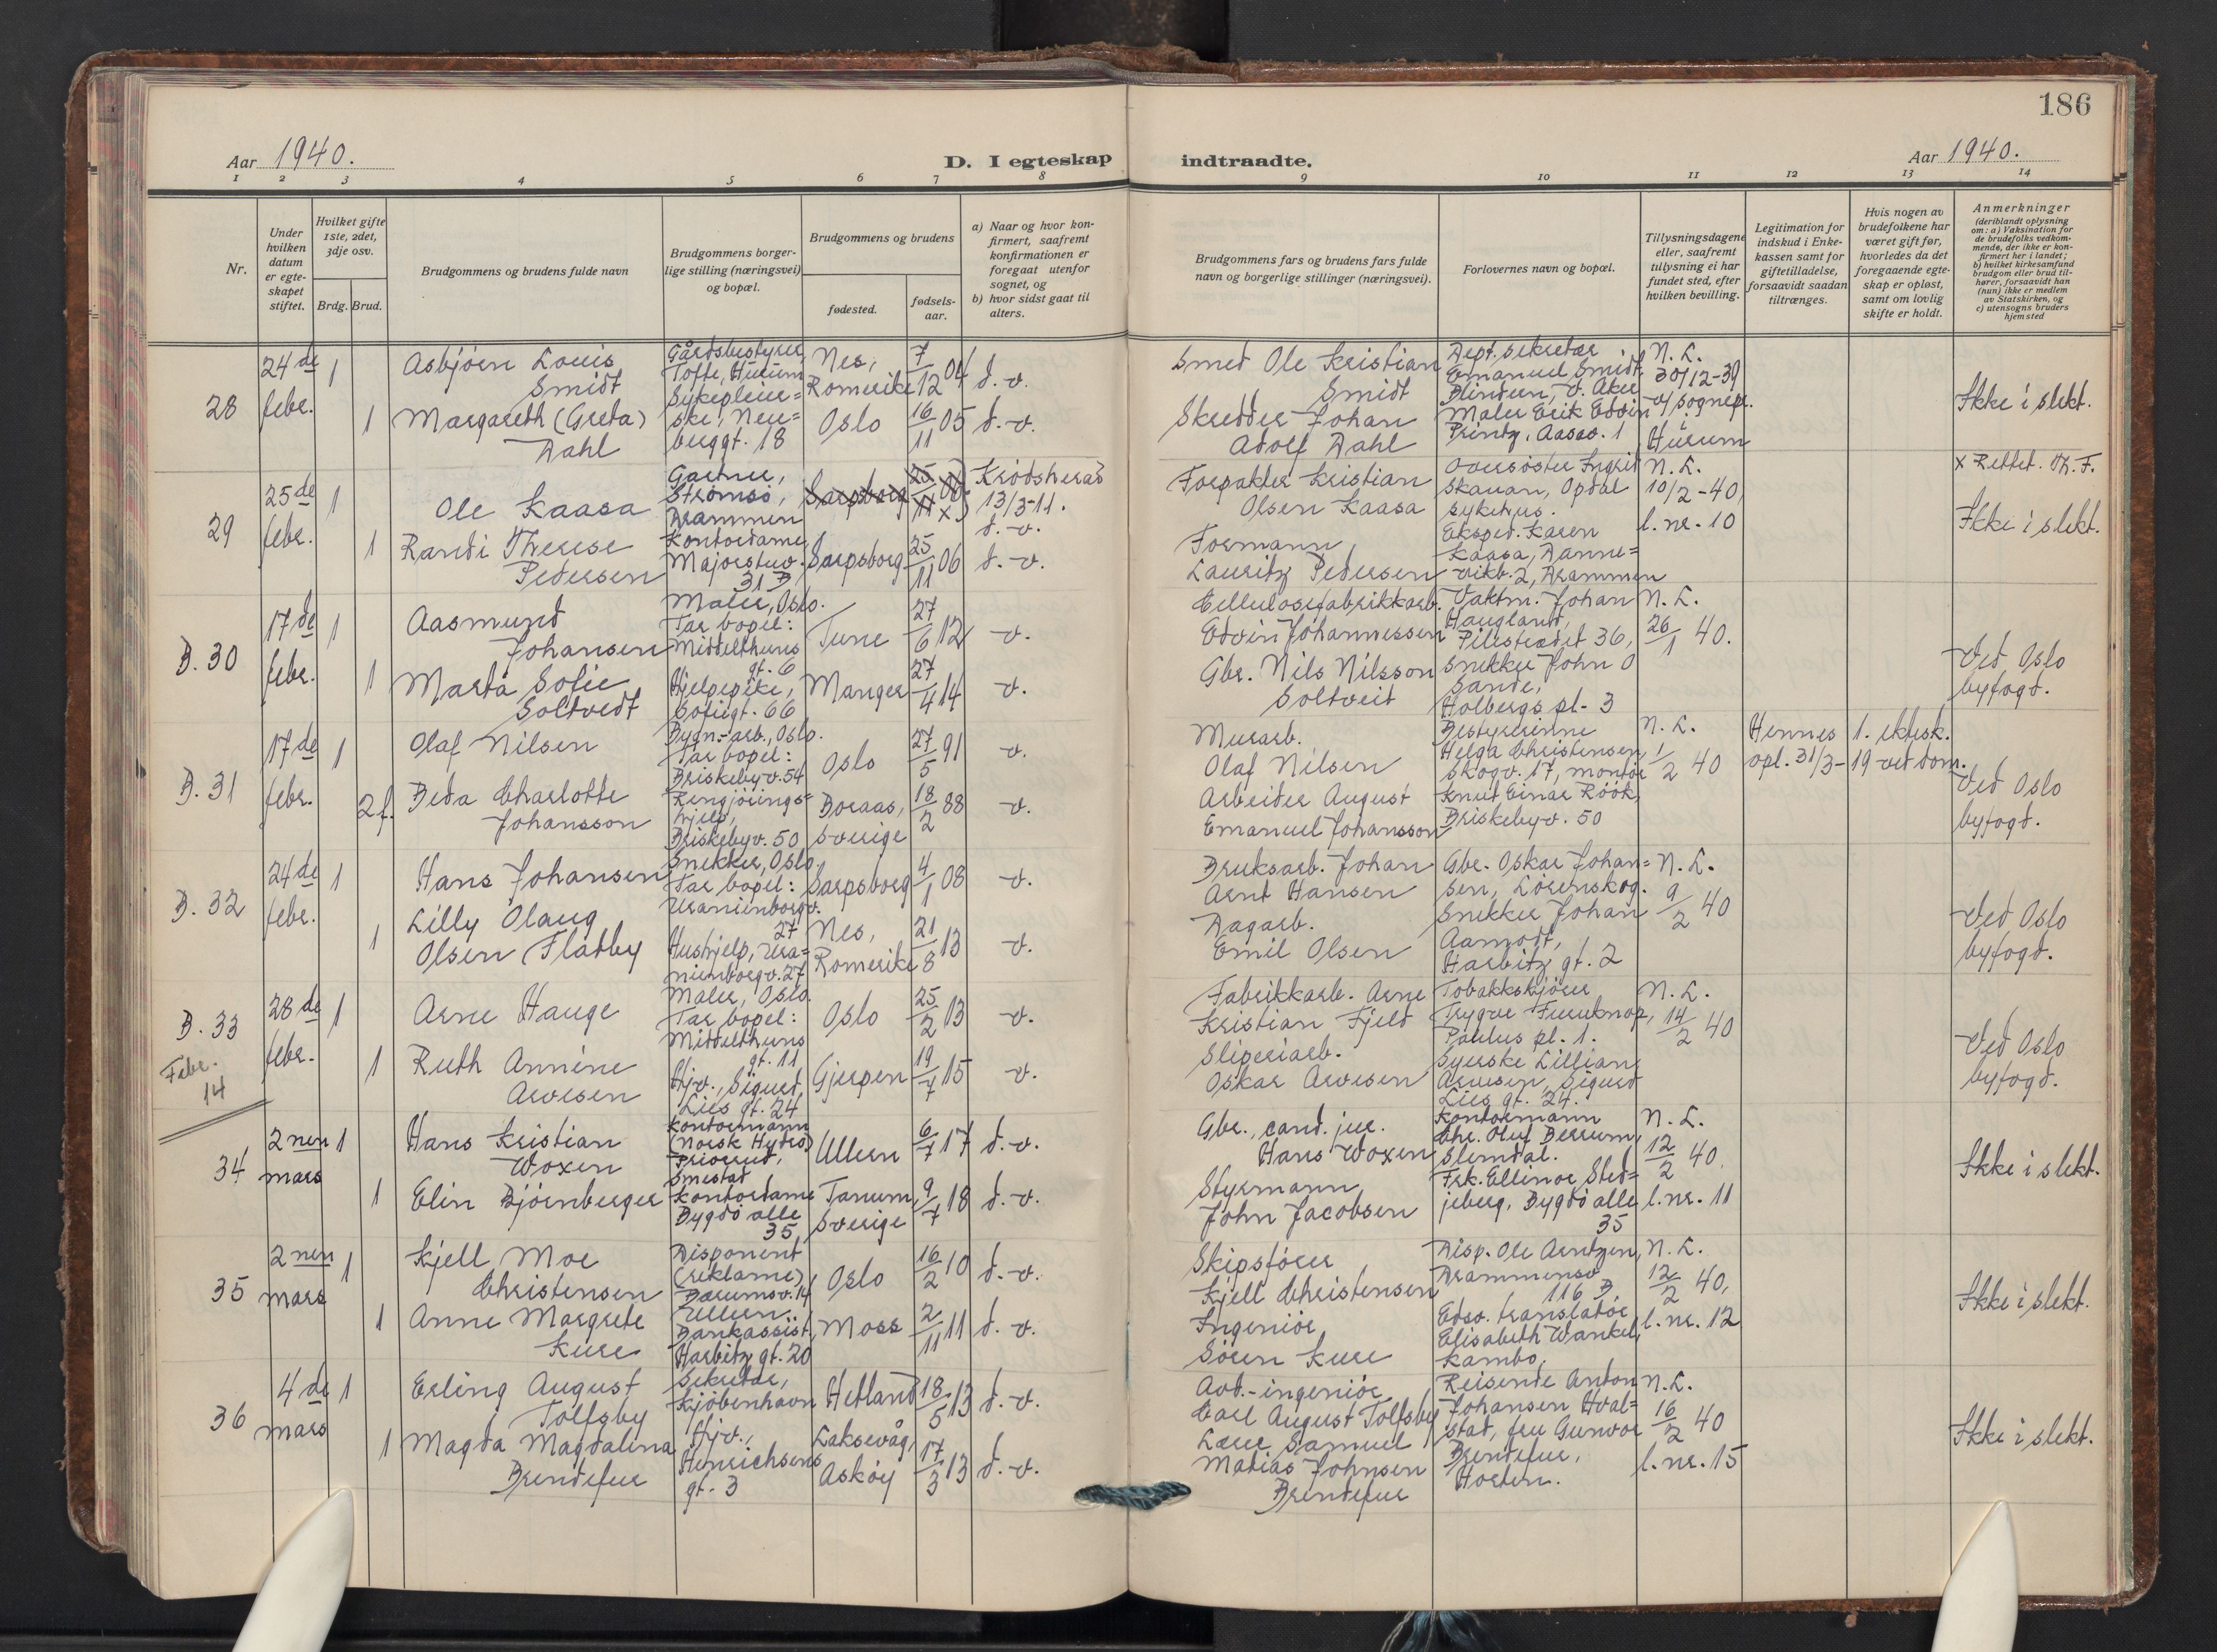 186
Aar 1940.
D. I egteskap indtraadte.
Aar 1940.
1 2 3 4 5 6 7 8 9 10 11 12 13 14
Nr.
Under hvilken datum er egteskapet stiftet.
Hvilket gifte 1ste, 2det, 3dje osv.
Brdg. Brud.
Brudgommens og brudens fulde navn
Brudgommens borgerlige stilling (næringsvei) og bopæl.
Brudgommens og brudens
fødested.
fødsels-aar.
a) Naar og hvor konfirmert, saafremt konfirmationen er foregaat utenfor sognet, og
b) hvor sidst gaat til alters.
Brudgommens fars og brudens fars fulde navn og borgerlige stillinger (næringsvei).
Forlovernes navn og bopæl.
Tillysningsdagene eller, saafremt tillysning ei har fundet sted, efter hvilken bevilling.
Legitimation for indskud i Enkekassen samt for giftetilladelse, forsaavidt saadan tiltrænges.
Hvis nogen av brudefolkene har været gift før, hvorledes da det foregaaende egteskap er opløst, samt om lovlig skifte er holdt.
Anmerkninger
(deriblandt oplysning om: a) Vaksination for de brudefolks vedkommende, der ikke er konfirmert her i landet; b) hvilket kirkesamfund brudgom eller brud tilhører, forsaavidt han (hun) ikke er medlem av Statskirken, og c) utensogns bruders hjemsted
28
24de febr.
1
Asbjørn Louis Smidt
Gårdsbestyrer, Tofte, Hurum
Nes, Romerike
7/12 04
d. v.
Smed Ole Kristian Smidt
Dept. sekretær Emanuel Smidt, Blindern, V. Aker
N. L. 30/12-39 v/ sognepr. i Hurum
Ikke i slekt.
1
Margareth (Greta) Dahl
Sykepleierske, Neuberggt. 18
Oslo
16/11 05
d. v.
Skredder Johan Adolf Dahl
Maler Erik Edvin Printz, Aasav. 1
29
25de febr.
1
Ole Kaasa
Gartner, Strømsø, Drammen
Sarpsborg
25/11 06 x
Krødsherad 13/3-11.
d. v.
Forpakter Kristian Olsen Kaasa
Oversøster Ingrid Skavan, Opdal sykehus.
N. L. 10/2-40, l. nr. 10
x Rettet. Th. F.
Ikke i slekt.
1
Randi Therese Pedersen
Kontordame, Majorstuv. 31 B
Sarpsborg
25/11 06
d. v.
Formann Lauritz Pedersen
Eksped. Karen Kaasa, Dannevikb. 2, Drammen
B. 30
17de febr.
1
Aasmund Johansen
Maler, Oslo. Far bopel: Middelthuns gt. 6
Tune
27/6 12
v.
Cellulosefabrikkarb. Edvin Johannessen
Vaktm. Johan Haugland, Pilestredet 36,
N. L. 26/1 40.
Ved Oslo byfogd.
1
Marta Sofie Soltvedt
Hjelpepike, Sofiegt. 66
Manger
27/4 14
v.
Gbr. Nils Nilsson Soltveit
Snekker John O Sande, Holbergs pl. 3
B. 31
17de febr.
1
Olaf Nilsen
Bygn.-arb., Oslo. Far bopel: Briskebyv. 54
Oslo
27/5 91
v.
Murarb. Olaf Nilsen
Bestyrerinne Helga Christensen, Skogv. 17, montør
N. L. 1/2 40
Hennes 1. ektesk. opl. 31/3-19 ved dom.
Ved Oslo byfogd.
2 f.
Beda Charlotte Johansson
Rengjøringshjelp, Briskebyv. 50
Boraas, Sverige
18/2 88
v.
Arbeider August Emanuel Johansson
Knut Einar Röök, Briskebyv. 50
B. 32
24de febr.
1
Hans Johansen
Snekker, Oslo. Far bopel: Uranienborgv. 27
Sarpsborg
4/1 08
v.
Bruksarb. Johan Arnt Hansen
Gbr. Oskar Johansen, Lörenskog.
N. L. 9/2 40
Ved Oslo byfogd.
1
Lilly Olaug Olsen Flatby
Hushjelp, Uranienborgv. 27
Nes, Romerike
21/8 13
v.
Dagarb. Emil Olsen
Snekker Johan Aamodt, Harbitz gt. 2
B. 33
Febr. 14
28de febr.
1
Arne Hauge
Maler, Oslo. Far bopel: Middelthuns gt. 11
Oslo
25/2 13
v.
Fabrikkarb. Arne Kristian Fjeld
Tobakkskjører Trygve Furuknap, Paulus pl. 1.
N. L. 14/2 40
Ved Oslo byfogd.
1
Ruth Annine Arvesen
Hjv., Sigurd Lies gt. 24
Gjerpen
19/7 15
v.
Sliperiarb. Oskar Arvesen
Syerske Lillian Arvesen, Sigurd Lies gt. 24.
34
2nen mars
1
Hans Kristian Woxen
Kontormann (Norsk Hydro) Priorend, Smestad
Ullern
6/7 17
d. v.
Gbr., cand. jur. Hans Woxen
Kontormann Chr. Oluf Berrum, Slemdal.
N. L. 12/2 40. l. nr. 11
Ikke i slekt.
1
Elin Bjørnberger
Kontordame Bygdø alle 35,
Tanum, Sverige
9/7 18
d. v.
Styrmann John Jacobsen
Frk. Ellinor Stedjeberg, Bygdø alle 35
35
2nen mars
1
Kjell Moe Christensen
Disponent (reklame), Bærumsv. 14 Ullern.
Oslo
16/2 10
d. v.
Skipsfører Kjell Christensen
Disp. Ole Arntzen, Drammensv. 116 B
N. L. 12/2 40, l. nr. 12
Ikke i slekt.
1
Anne Margrete Kure
Bankassist., Harbitz gt. 20
Moss
2/11 11
d. v.
Ingeniør Sören Kure
Edsv. translatør Elisabeth Wankel, Kambo.
36
4de mars
1
Erling August Tolfsby
Sekretær, Kjøbenhavn
Hetland
18/5 13
d. v.
Avd.-ingeniør Carl August Tolfsby
Reisende Anton Johansen Hvalstad, fru Gunvor Brendefur, Horten.
N. L. 16/2 40 l. nr. 15
Ikke i slekt.
1
Magda Magdalina Brendefur
Hjv., Henrichsens gt. 3
Laksevåg, Askøy
17/3 13
d. v.
Lærer Samuel Matias Johnsen Brendefur